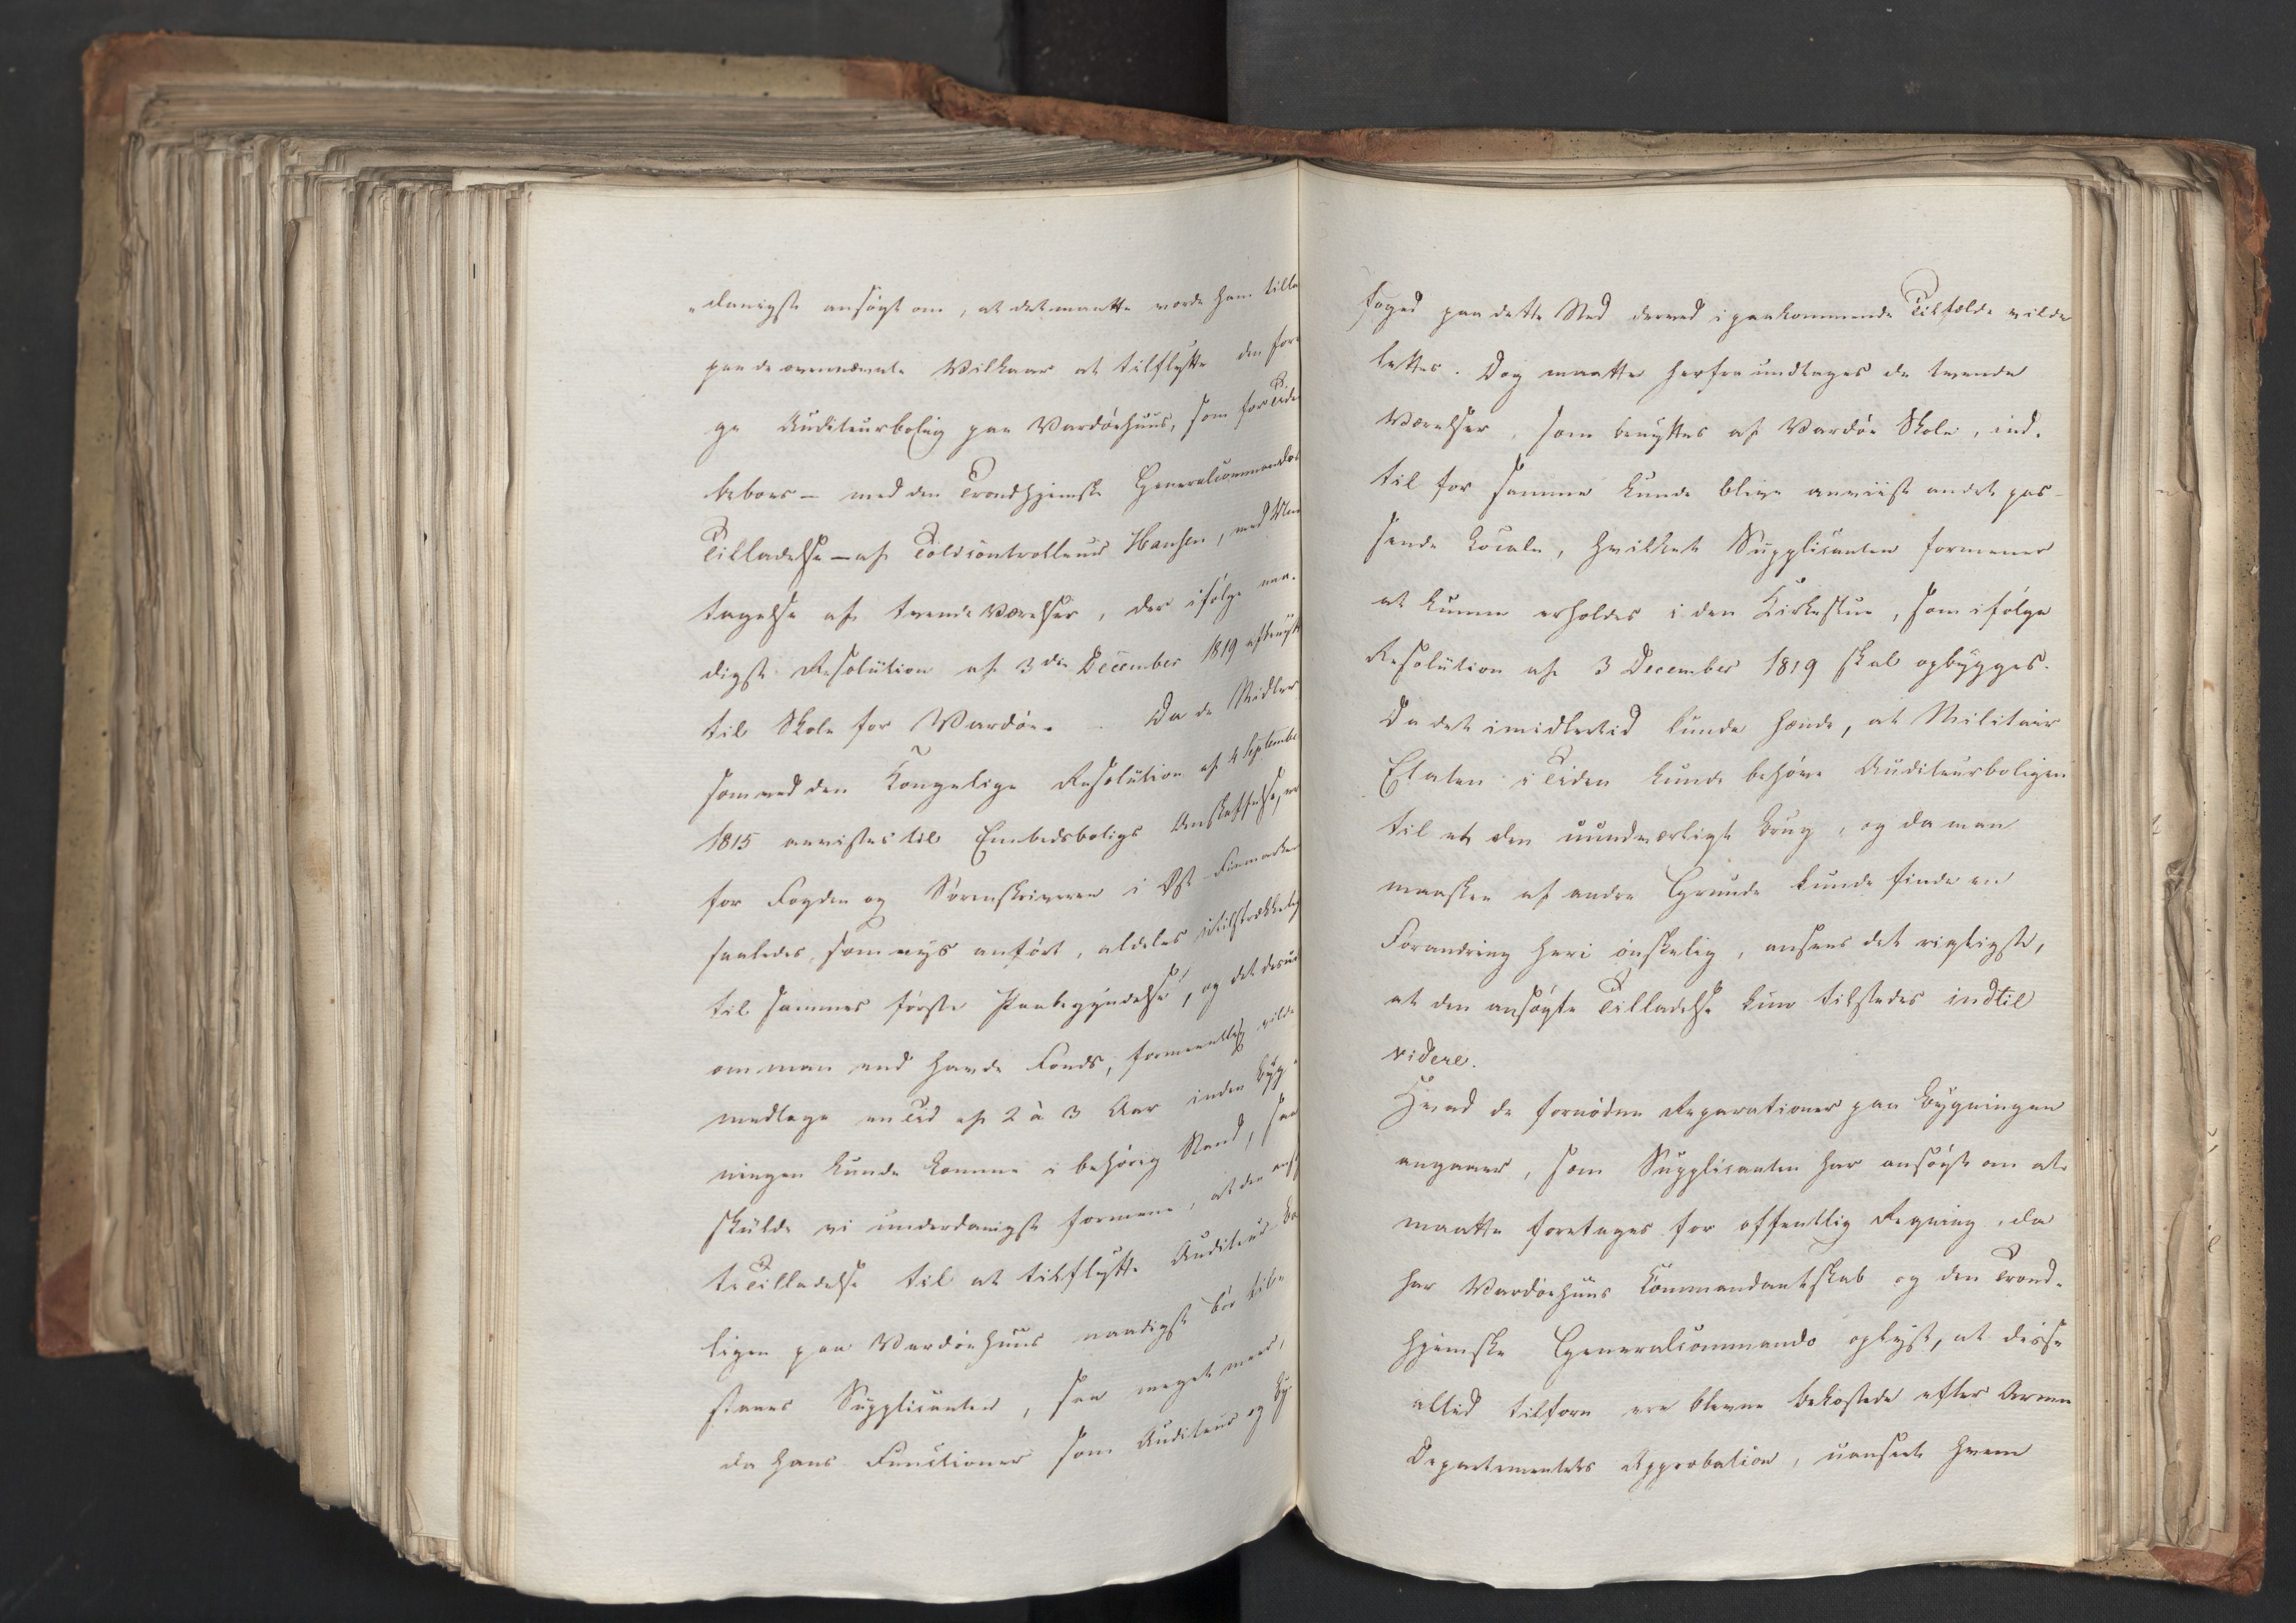 „danigst ansøgt om, at det maatte vorde ham tilla
paa de ovennævnte Vilkaar at tilflytte den for
ge Auditeurbolig paa Vardøehuus, som for Tide
beboes – med den Trondhjemske Generalcommandos
Tilladelse – af Toldcontrolleur Hansen, med Und
tagelse af tvende Værelser, der ifølge naa-
digst Resolution af 3die December 1819 afbenytt
til Skole for Vardøe. – Da de Midler
som ved den Kongelige Resolution af 4 Septembe
1815 anvistes til Embedsboligs Anskaffelse, er
for Fogden og Sørenskriveren i Øst-Finmarken
saaledes, som nys anført, aldeles utilstrækkelig
til sammes første Paabegyndelse, og det desud
om man end havde Fonds, formeentlig vilde
medtage en Tid af 2 à 3 Aar inden Byg-
ningen kunde komme i behørig Stand, saa
skulde vi underdanigst formene, at den ansø
te Tilladelse til at tilflytte Auditeur-Bo
ligen paa Vardøehuus naadigst bør tile
staaes Supplicanten, saa meget meer,
da hans Functioner som Auditeur og By
foged paa dette Sted derved i paakommende Tilfælde vilde
lettes. Dog maatte herfra undtages de tvende
Værelser, som benyttes af Vardøe Skole, ind-
til for samme kunde blive anviist andet pas-
sende Locale, hvilket Supplicanten formener
at kunne erholdes i den Kirkestue, som ifølge
Resolution af 3 December 1819 skal opbygges.
Da det imidlertid kunde hænde, at Militair
Etaten i Tiden kunde behøve Auditeurboligen
til et den uundværligt Brug, og da man
maaskee af andre Grunde kunde finde en
Forandring heri ønskelig, ansees det rigtigst,
at den ansøgte Tilladelse kun tilstedes indtil
videre.
Hvad de fornødne Reparationer paa Bygningen
angaaer, som Supplicanten har ansøgt om at
maatte foretages for offentlig Regning, da
har Vardøehuus Commandantskab og den Trond-
hjemske Generalcommando oplyst, at disse
altid tilforn ere blevne bekostede efter Armee
Departementets Approbation, uanseet hvem